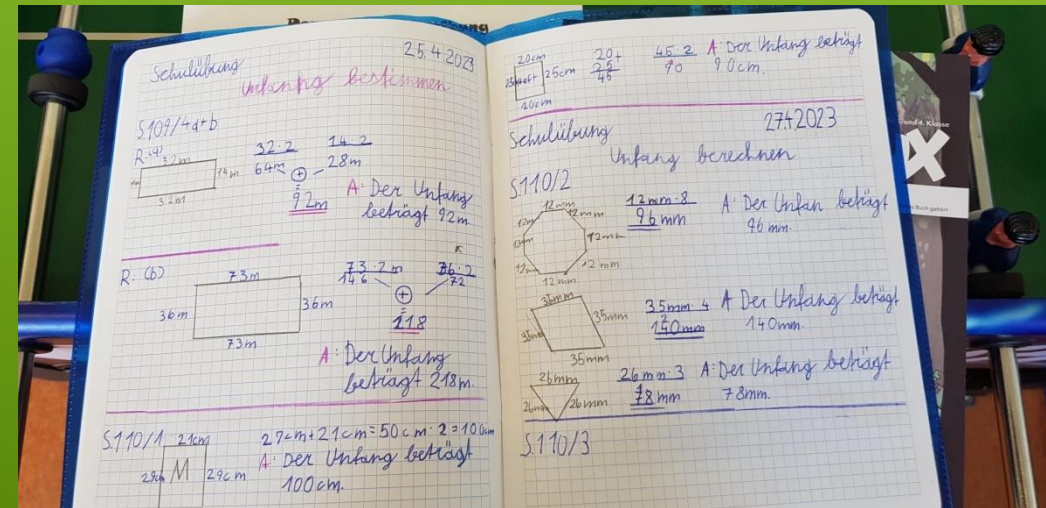 Schulübung 25.4.2023
Unfanng bestimmen
S109/4a+b
R.(a)
32m
14m
32m
32·2 14·2
64m ⊕ 28m
=
92m
A: Der Unfang
beträgt 92m.
R. (b)
73m
36m 36m
73m
73·2m 36·2
146 ⊕ 72
=
218
A: Der Unfang
beträgt 218m.
S.110/1
21cm
29cm M 29cm
29cm+21cm=50cm·2=100cm
A: Der Unfang beträgt
100cm.
20cm
25cm
20cm
20+
25
45
45·2
90
A: Der Unfang beträgt
90cm.
Schulübung 27.4.2023
Unfang berechnen
S.110/2
12mm
12mm 12mm
12mm
12mm 12mm
12mm
12mm·8
96mm
A: Der Unfan beträgt
96 mm.
35mm
35mm 35mm
35mm
35mm·4
140mm
A Der Unfang beträgt
140mm.
26mm
26mm 26mm
26mm·3
78mm
A: Der Unfang beträgt
78mm.
S.110/3
und 4. Klasse
x
Buch gehört